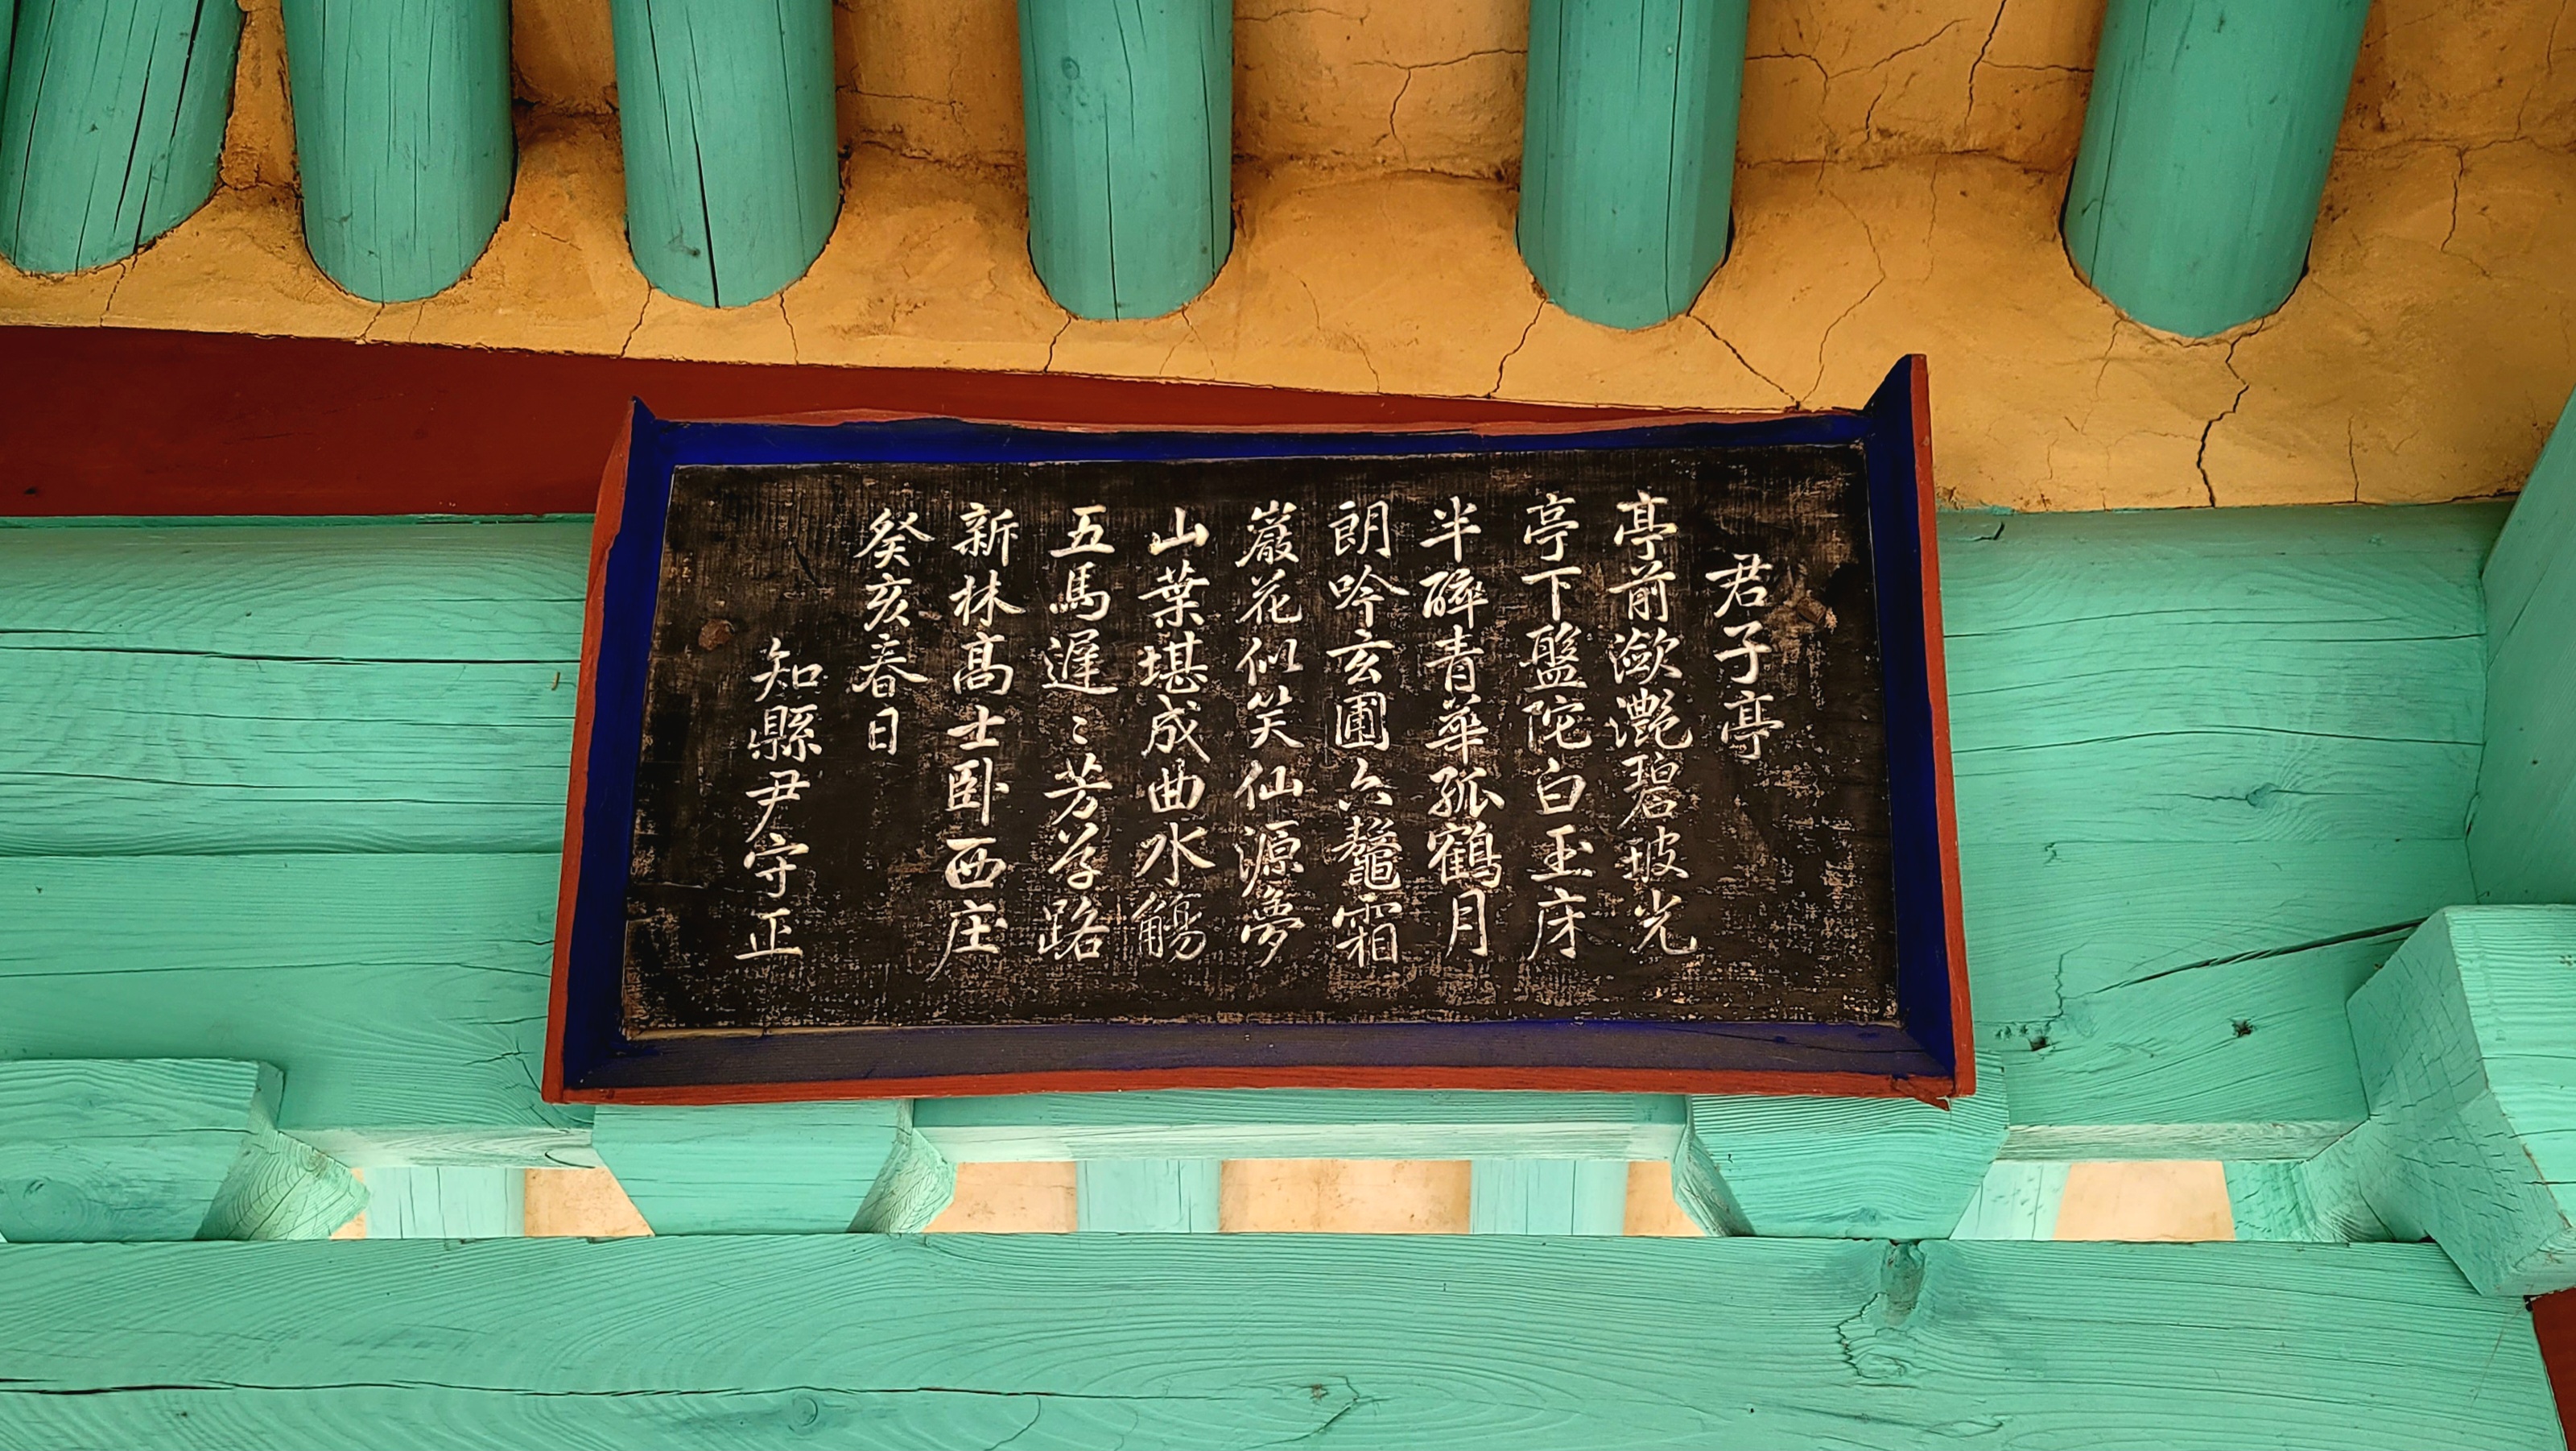 君子亭
亭前瀲灔碧玻光
亭下盤陀白玉床
半醉青華孤鶴月
朗吟玄圃六鼇霜
巖花似笑仙源夢
山葉堪成曲水觴
五馬遲〻芳草路
新林高士卧西庄
癸亥春日
知縣尹守正